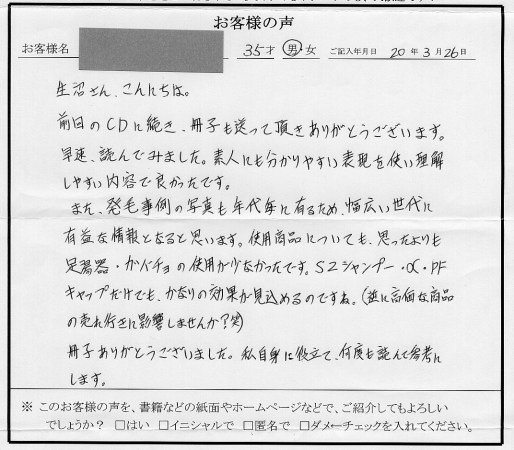 お客様の声
お客様名 35才 男・女 ご記入年月日 20年3月26日
生沼さん、こんにちは。
前日のCDに続き、冊子も送って頂きありがとうございます。
早速、読んでみました。素人にも分かりやすい表現を使い理解
しやすい内容で良かったです。
また、発毛事例の写真も年代毎に有るため、幅広い世代に
有益な情報となると思います。使用商品についても、思ったよりも
足湯器・カバチョの使用が少なかったです。S2シャンプー・α・PF
キャップだけでも、かなりの効果が見込めるのですね。(逆に高価な商品
の売れ行きに影響しませんか?笑)
冊子ありがとうございました。私自身に役立て、何度も読んで参考に
します。
※ このお客様の声を、書籍などの紙面やホームページなどで、ご紹介してもよろしい
でしょうか? □はい □イニシャルで □匿名で □ダメーチェックを入れてください。